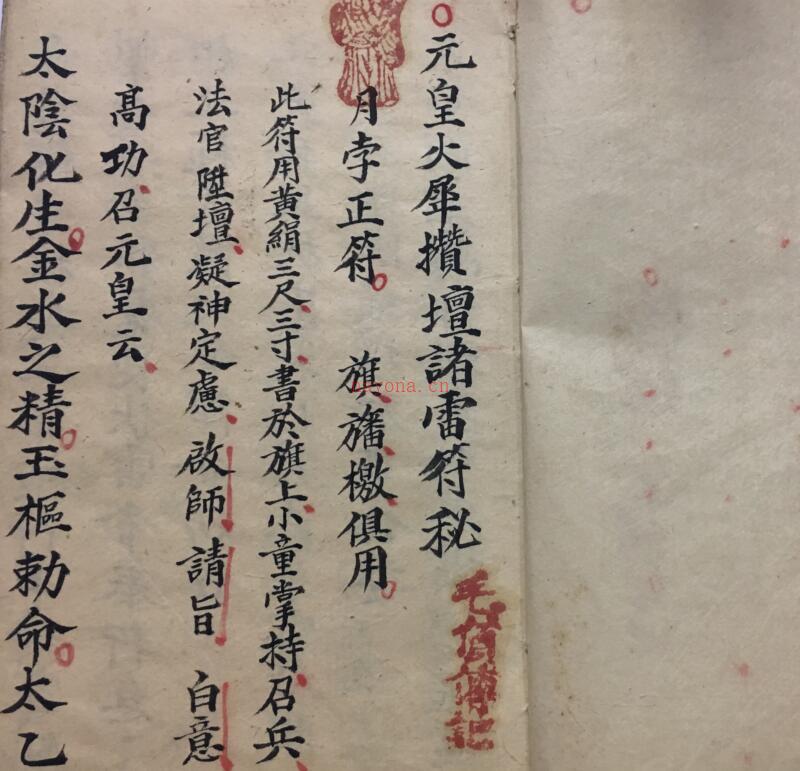 元皇火犀攢壇諸雷符秘
月孛正符 旗旛檄俱用
此符用黄絹三尺三寸書於旗上小童掌持召兵
法官陞壇凝神定慮啟師請旨 白意
高功召元皇云
太陰化生金水之精玉樞勅命太乙